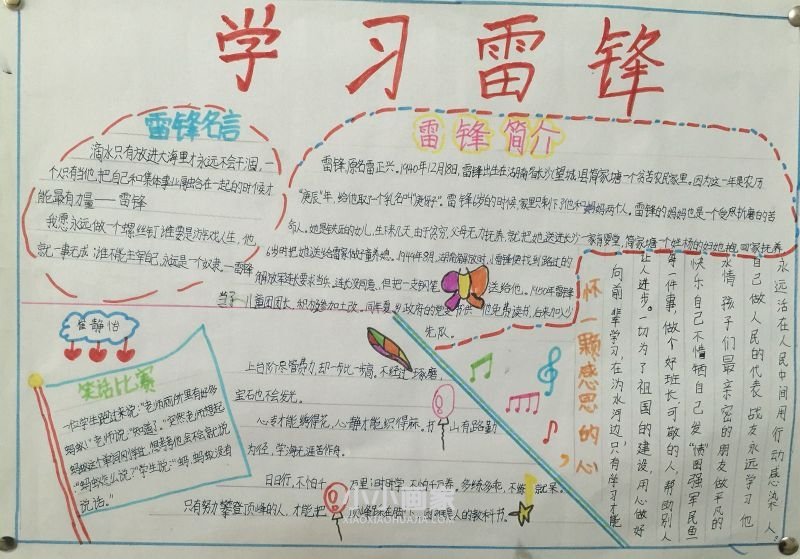 学习雷锋
雷锋名言
滴水只有放进大海里才永远不会干涸，一
个人只有当他把自己和集体事业融合在一起的时候才
能最有力量——雷锋
我愿永远做一个螺丝钉 谁要是游戏人生，他
就一事无成；谁不能主宰自己，永远是一个奴隶。—雷锋
雷锋简介
雷锋，原名雷正兴。1940年12月18日，雷锋出生在湖南省长沙望城县简家塘一个贫苦农民家里。因为这一年是农历
"庚辰"年，给他取了个乳名叫"庚伢子"。雷锋6岁的时候，家里只剩下他和妈妈两个人。雷锋的妈妈也是一个受尽折磨的苦
命人。她是铁匠的女儿，生下来几天，由于贫穷，父母无力抚养，就把她送进长沙一家育婴堂，简家塘一个姓杨的妇她抱回家抚养
6岁时把她送给雷家做童养媳。1949年8月，湖南解放时，小雷锋便找到路过的
解放军连长要求当兵。连长没同意，但把一支钢笔送给他。1950年雷锋
当了儿童团团长，积极参加土改。同年夏，乡政府的党支书供他免费读书，后来加入少
先队。
崔静怡
笑话比赛
一位学生跑过来说："老师厕所里有好多
蚂蚁！"老师说："知道了。"突然老师想起
蚂蚁这个单词刚学过，想考考他会不会就说
"蚂蚁怎么说？"学生说："蚂，蚂蚁没有
说话。"
上台阶尽管费力，却一步比一步高。不经过琢磨，
宝石也不会发光。
心专才能绣得花，心静才能织得麻。书山有路勤
为径，学海无涯苦作舟。
日日行，不怕千万里；时时学，不怕千万卷，多练多乾，不
只有努力攀登顶峰的人，才能把
人的教科书。
怀一颗感恩的心，
永远活在人民中间用行动感染人。
自己做人民的代表战友永远学习他
水情孩子们最亲密的朋友做平凡的
快乐自己不惜牺自己发"愤"图强军民鱼
每一件事，做个好班长可敬的人，帮助别人
让人进步。一切为了祖国的建设，用心做好
向前辈学习，在沩水河边，只有学习才能
小小画家
XIAOXIAOHUAJIA.COM